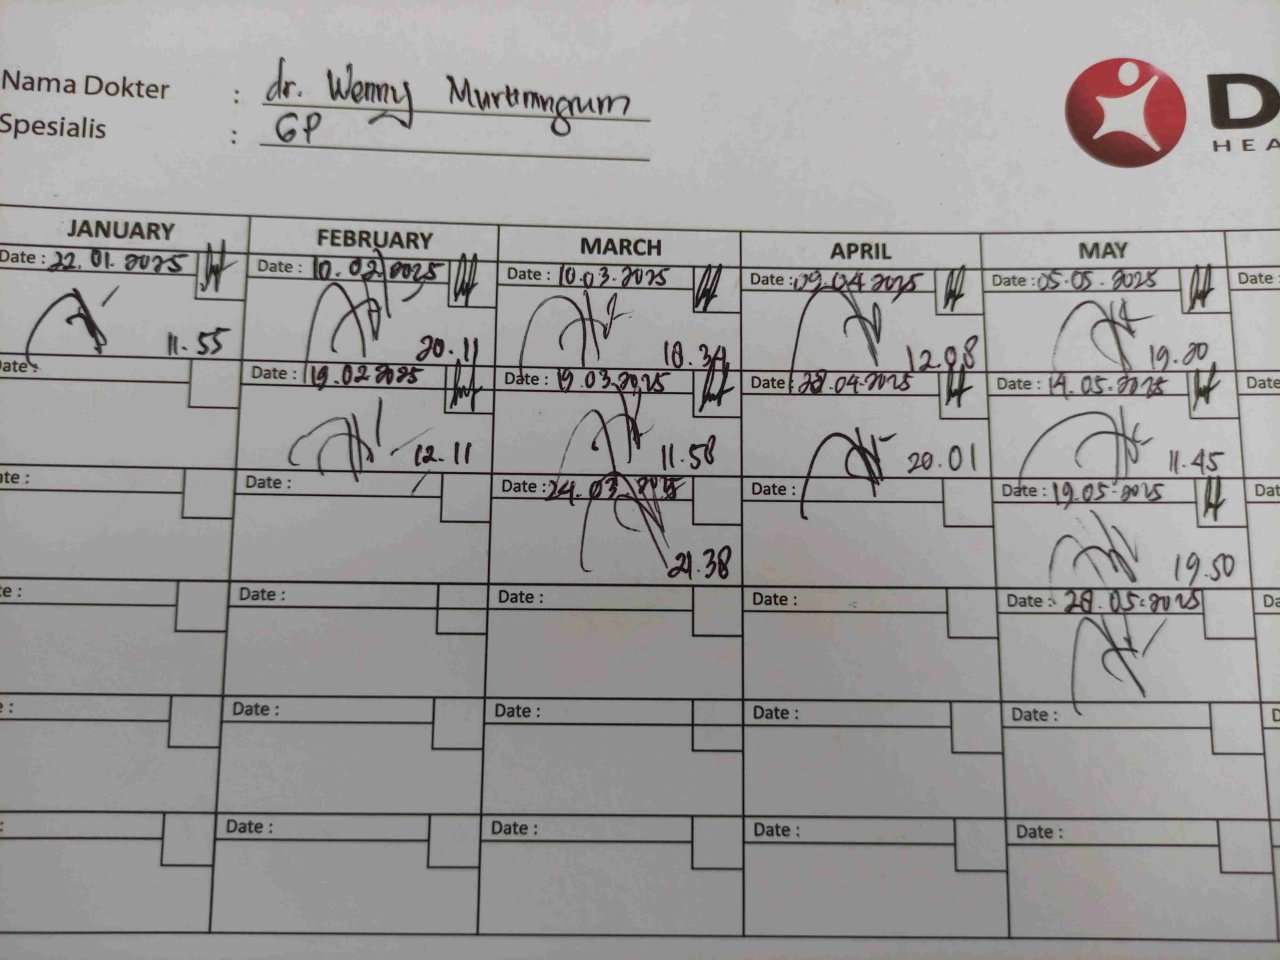 Nama Dokter : dr. Wenny Murtiningrum
Spesialis : GP
D
HEA
JANUARY FEBRUARY MARCH APRIL MAY
Date : 22.01.2025 Date : 10.02.2025 Date : 10.03.2025 Date : 09.04.2025 Date : 05.05.2025 Date :
11.55 20.11 18.34 12.08 19.20
Date : Date : 19.02.2025 Date : 19.03.2025 Date : 28.04.2025 Date : 14.05.2025 Date
12.11 11.58 20.01 11.45
te : Date : Date : 24.03.2025 Date : Date : 19.05.2025 Dat
21.38 19.50
e : Date : Date : Date : Date : 28.05.2025 Da
e : Date : Date : Date : Date : D
: Date : Date : Date : Date :